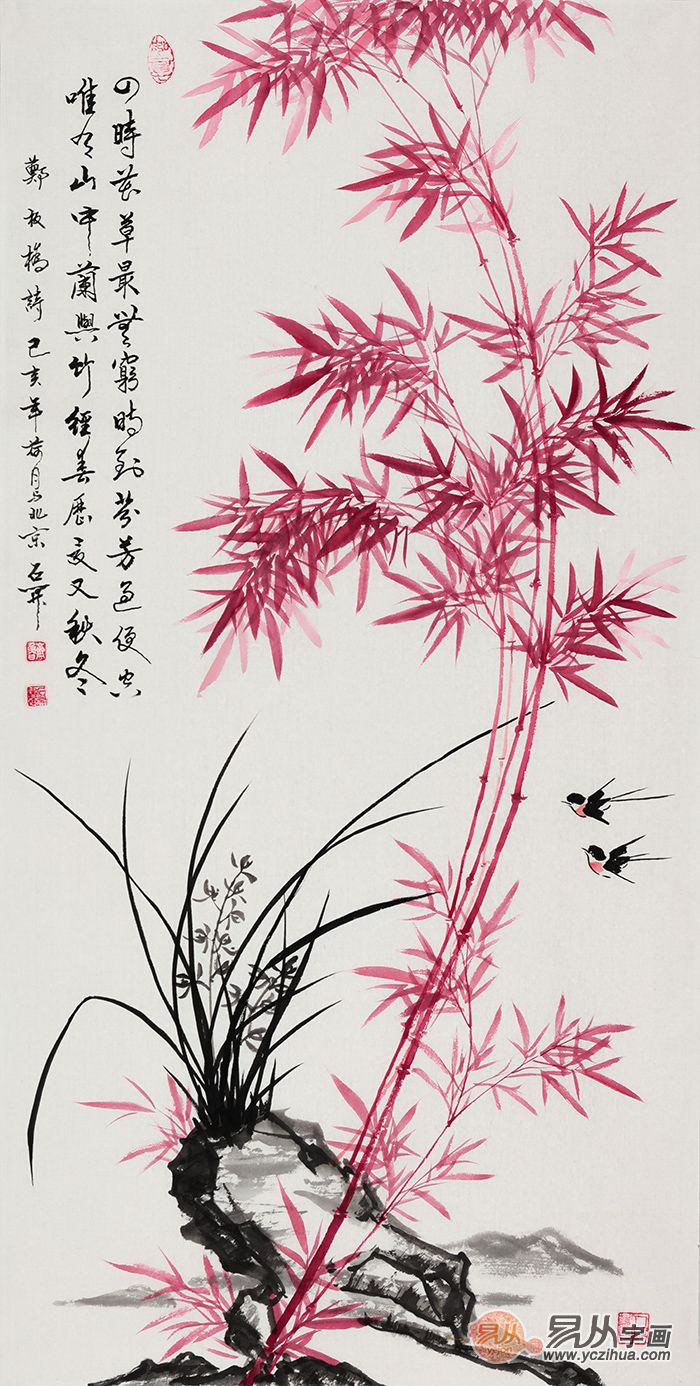 四時花草最無窮時到芬芳過便空
唯有山中蘭與竹經春歷夏又秋冬
鄭板橋詩己亥年荷月於北京石開
易从
易从字画
www.yczihua.com